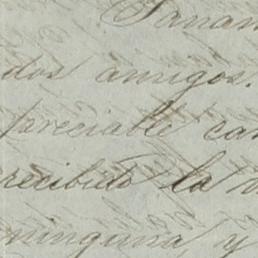 Panam
dos amigos.
preciable car
recibido la
ninguna, y